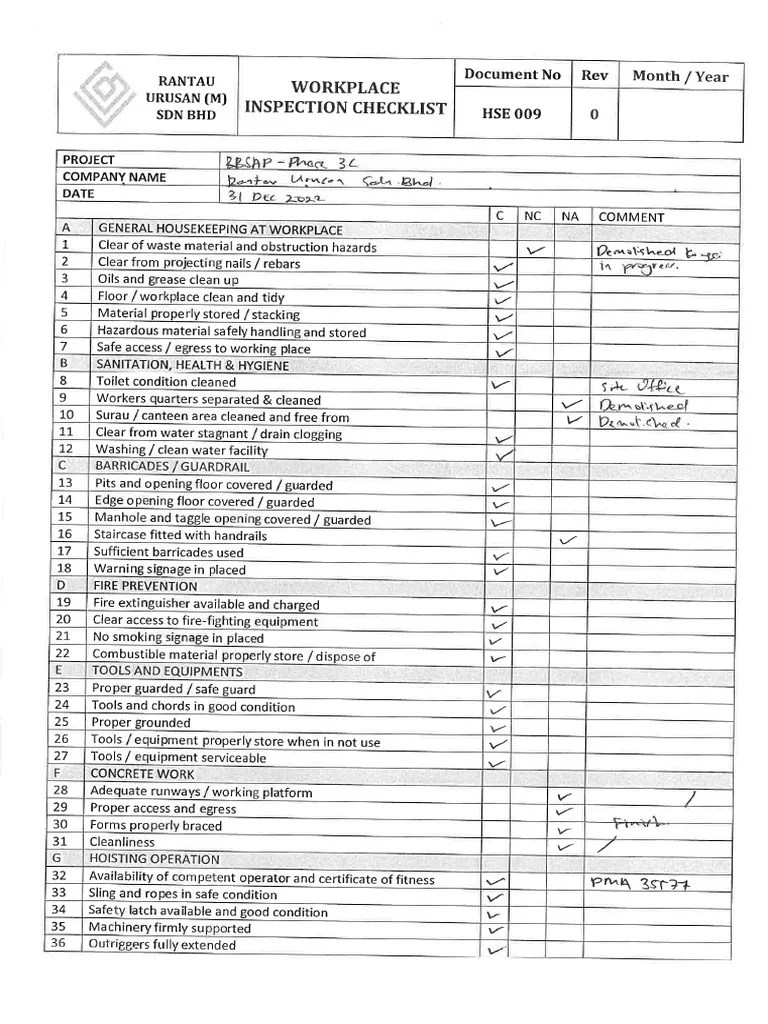 RANTAU
URUSAN (M)
SDN BHD
WORKPLACE
INSPECTION CHECKLIST
Document No Rev Month / Year
HSE 009 0
PROJECT BBSAP - Phase 3C
COMPANY NAME Rantau Urusan Sdn Bhd.
DATE 31 Dec 2022
C NC NA COMMENT
A GENERAL HOUSEKEEPING AT WORKPLACE
1 Clear of waste material and obstruction hazards ✓ Demolished
2 Clear from projecting nails / rebars ✓ in progress.
3 Oils and grease clean up ✓
4 Floor / workplace clean and tidy ✓
5 Material properly stored / stacking ✓
6 Hazardous material safely handling and stored ✓
7 Safe access / egress to working place ✓
B SANITATION, HEALTH & HYGIENE
8 Toilet condition cleaned ✓ Site Office
9 Workers quarters separated & cleaned ✓ Demolished
10 Surau / canteen area cleaned and free from ✓ Demolished.
11 Clear from water stagnant / drain clogging ✓
12 Washing / clean water facility ✓
C BARICADES / GUARDRAIL
13 Pits and opening floor covered / guarded ✓
14 Edge opening floor covered / guarded ✓
15 Manhole and taggle opening covered / guarded ✓
16 Staircase fitted with handrails ✓
17 Sufficient barricades used ✓
18 Warning signage in placed ✓
D FIRE PREVENTION
19 Fire extinguisher available and charged ✓
20 Clear access to fire-fighting equipment ✓
21 No smoking signage in placed ✓
22 Combustible material properly store / dispose of ✓
E TOOLS AND EQUIPMENTS
23 Proper guarded / safe guard ✓
24 Tools and chords in good condition ✓
25 Proper grounded ✓
26 Tools / equipment properly store when in not use ✓
27 Tools / equipment serviceable ✓
F CONCRETE WORK
28 Adequate runways / working platform ✓ /
29 Proper access and egress ✓
30 Forms properly braced ✓ Finish.
31 Cleanliness ✓ /
G HOISTING OPERATION
32 Availability of competent operator and certificate of fitness ✓ PMA 35577
33 Sling and ropes in safe condition ✓
34 Safety latch available and good condition ✓
35 Machinery firmly supported ✓
36 Outriggers fully extended ✓